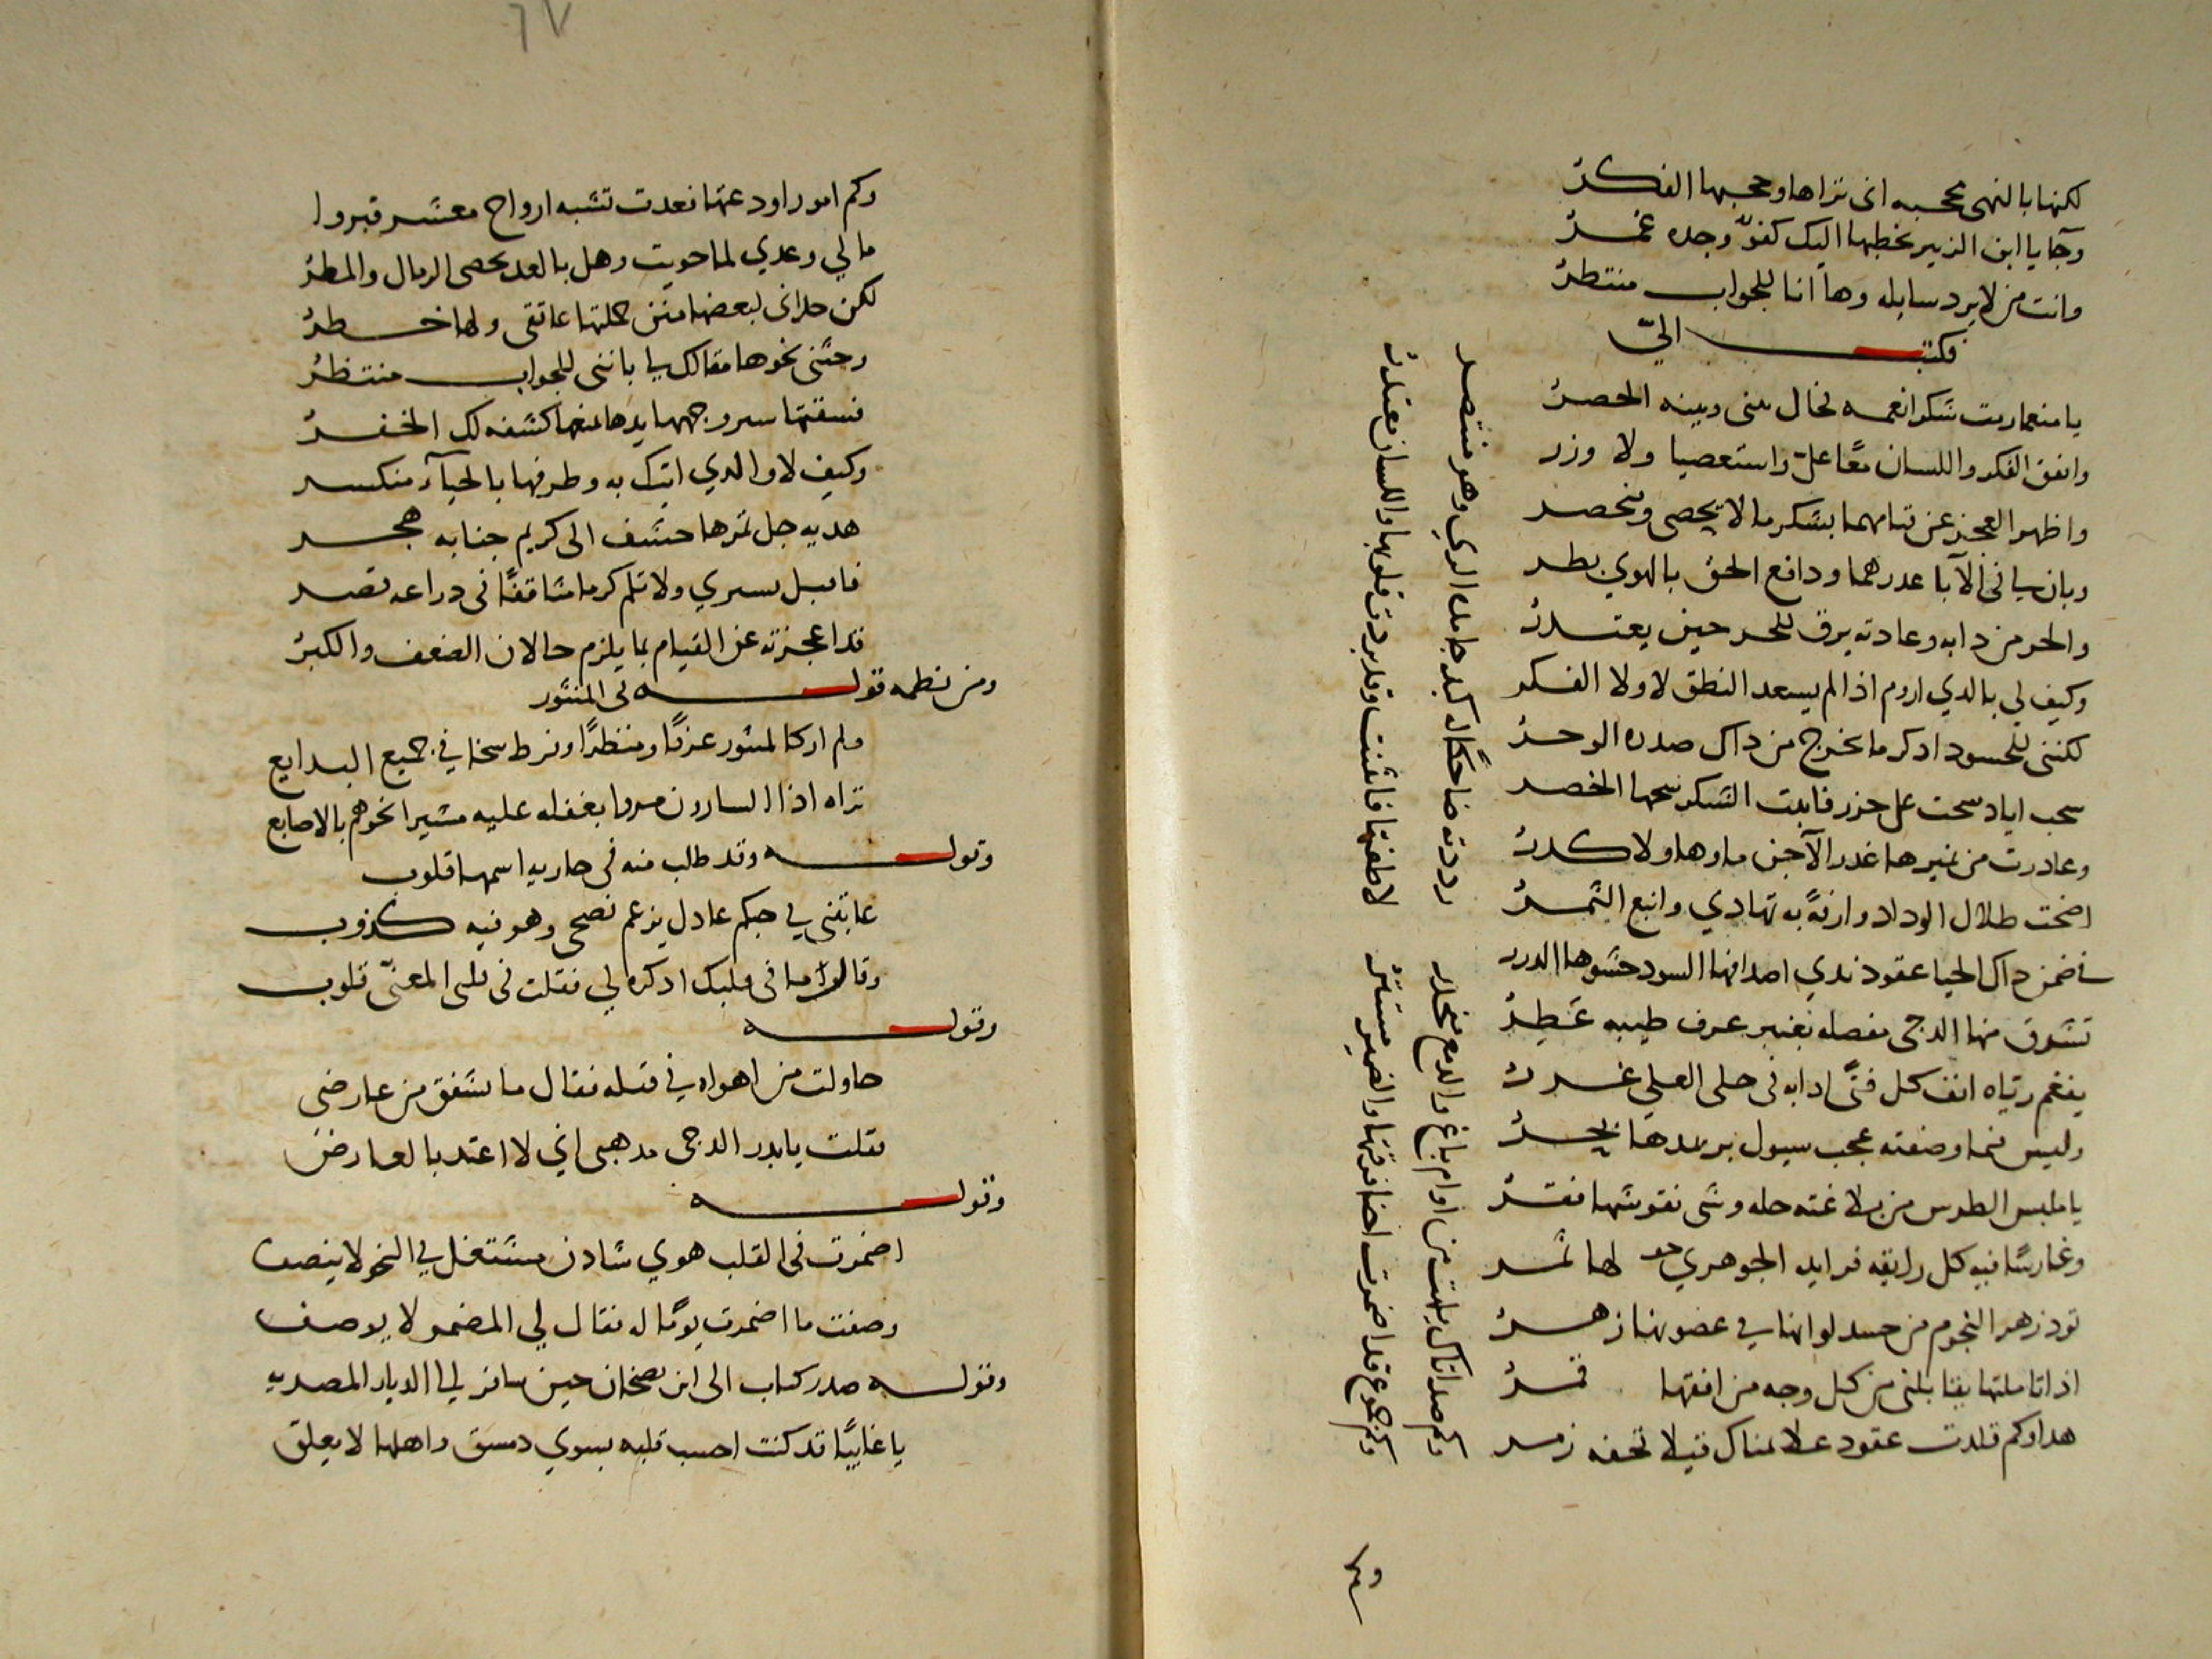 لكنها بالنهى محجبه انى تراها وحجبها الفكر
وجآ يا ابن الزبير يخطبها اليك كفوٌ وجده عمر
وانت من لا يرد سايله وها انا للجواب منتظر
فكتب الىّ
يا منعما رمت شكر انعمه فحال بينى وبينه الحصر
واتفق الفكر واللسان معًا علىّ واستعصيا ولا وزر
واظهرا العجز عن قيامهما بشكر ما لا يحصى وينحصر
وبان لى فى الآبا عدرهما ودافع الحق بالهوي بطر
والحر من دابه وعادته يرق للحر حين يعتدر
وكيف لي بالدي اروم اذا لم يسعد النطق لا ولا الفكر
لكننى للحسود ادكر ما يخرج من داك صدره الوحر
سحب اياد سحت على حزر فابدت الشكر سحبها الخصر
وغادرت من نميرها غدر الآجن ماوها ولا كدر
اضحت طلال الوداد وارفةً به تهادي وانبع الثمر
فاضمن داك الحيا عقود ندي اصدافها السود حشوها الدرر
تشرق منها الدجى مفصله بعنبر عرف طيبه عَطِر
يفغم رياه انف كل فتًى ادابه فى حلى العلى غرر
وليس فيما وصفته عجب سيول بر يمدها بحر
يا ملبس الطرس من بلاغته حله وشى نقوشها فقر
وغارسًا فيه كل رايقه فرايد الجوهري لها ثمر
تود زهر النجوم من حسد لو انها في غصونها زهر
اذا تاملتها يقابلنى من كل وجه من افقها قمر
هدا وكم قلدت عقود علا يمناك قيلا تحفه زمر
وكم صد اتاك يلهث من اوام باغ والدمع منحدر
رددته ضاحكًا له كبد حامد الري وهو منتصر
وكم جموع قد اضمرت احنا فرقتها والضمير مستتر
لاطفتها فانثنت وقد بردت قلوبها واللسان معتدر
وكم
٦٧
وكم امور اودعتها فعدت تشبه ارواح معشر قبروا
ما لي وعدي لما حويت وهل بالعد يحصى الرمال والمطر
لكن حدانى لبعضها منن حملتها عاتقى ولها خطر
وحثنى نحوها مقالك لي باننى للجواب منتظر
فسقتها سر وجهها يدها منعها كشفه لك الخفر
وكيف لا والدي اتيك به وطرفها بالحيآء منكسر
هديه جل تمرها حشف الى كريم جنابه هجر
فاسبل بستري ولا تلم كرما مثاقفًا فى دراعه قصر
قد اعجزته عن القيام بما يلزم حالان الضعف والكبر
ومن نظمه قوله فى المنثور
ولم ار كالمنثور عرفًا ومنظرًا وفرط سخا في جميع البدايع
تراه اذا السارون مروا بغفله عليه مشيرا نحوهم بالاصابع
وقوله وقد طلب منه فى جاريه اسمها قلوب
عاتبنى في حبكم عادل يزعم نصحى وهو فيه كذوب
وقال ما فى قلبك ادكره لي فقلت فى قلبى المعنّى قلوب
وقوله
حاولت من اهواه في قبله فقال ما تشفق من عارضي
فقلت يا بدر الدجى مدهبى انى لا اعتد بالعارض
وقوله
اضمرت فى القلب هوي شادن مشتغل في النحو لا ينصف
وصفت ما اضمرت يومًا له فقال لي المضمر لا يوصف
وقوله صدر كتاب الى ابن بصخان حين سافر الى الديار المصريه
يا غايبًا قد كنت احسب قلبه بسوي دمشق واهلها لا يعلق